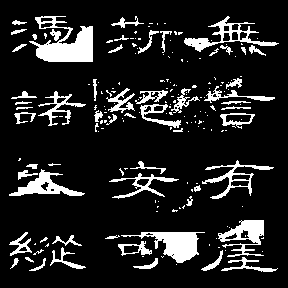 無言有崖
斯絕安可
憑諸天縱